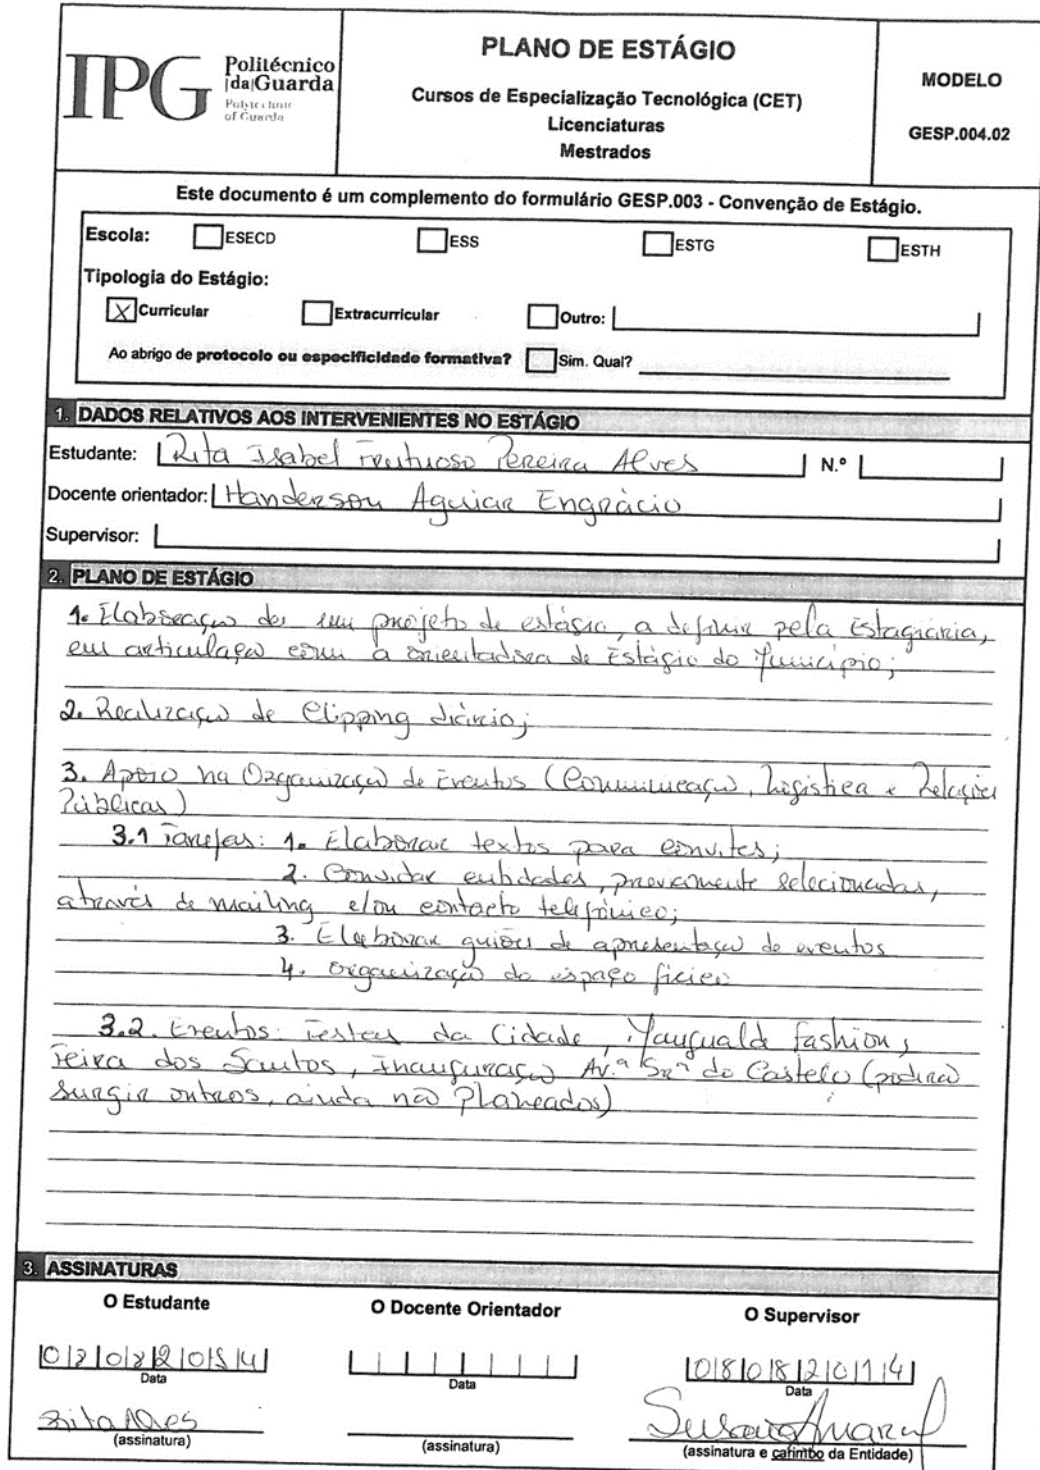 IPG Politécnico
|da|Guarda
Polytechnic
of Guarda
PLANO DE ESTÁGIO
Cursos de Especialização Tecnológica (CET)
Licenciaturas
Mestrados
MODELO
GESP.004.02
Este documento é um complemento do formulário GESP.003 - Convenção de Estágio.
Escola: ESECD ESS ESTG ESTH
Tipologia do Estágio:
X Curricular Extracurricular Outro:
Ao abrigo de protocolo ou especificidade formativa? Sim. Qual?
1. DADOS RELATIVOS AOS INTERVENIENTES NO ESTÁGIO
Estudante: Rita Isabel Frutuoso Pereira Alves N.º
Docente orientador: Handerson Aguiar Engrácio
Supervisor:
2. PLANO DE ESTÁGIO
1. Elaboração de um projeto de estágio, a definir pela Estagiária,
em articulação com a orientadora de Estágio do Município;
2. Realização de Clipping diário;
3. Apoio na Organização de Eventos (Comunicação, Logística e Relações
Públicas)
3.1 Tarefas: 1. Elaborar textos para convites;
2. Convidar entidades, previamente selecionadas,
através de mailing e/ou contacto telefónico;
3. Elaborar guiões de apresentação de eventos
4. Organização do espaço físico
3.2. Eventos: Festas da Cidade, Mangualde Fashion,
Feira dos Santos, Inauguração Av.ª Srª do Castelo (poderá
surgir outros, ainda não planeados)
3. ASSINATURAS
O Estudante O Docente Orientador O Supervisor
08082014
Data Data Data
Rita Alves Susana Amaral
(assinatura) (assinatura) (assinatura e carimbo da Entidade)